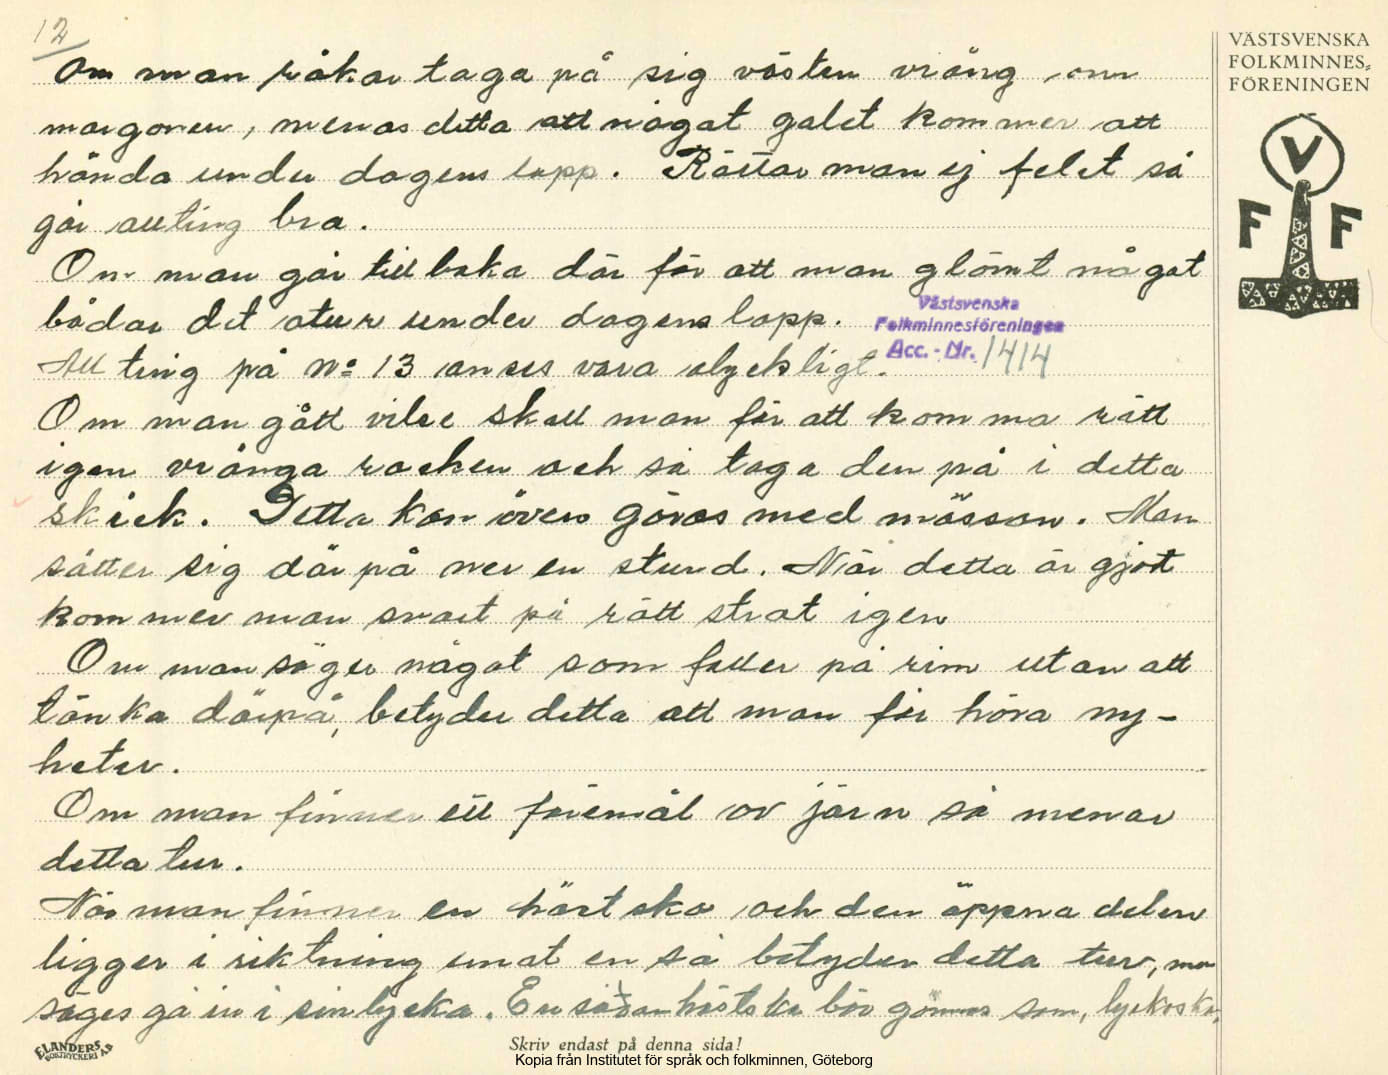 12
VÄSTSVENSKA
FOLKMINNES-
FÖRENINGEN
V
F F
Om man råkar taga på sig västen vräng om
morgonen, menas detta att något galet kommer att
hända under dagens lopp. Rättar man ej felet så
går allting bra.
Om man går tillbaka där för att man glömt något
bådar det otur under dagens lopp.
Västsvenska
Folkminnesföreningen
Acc. - Nr. 1414
Allting på No 13 anses vara olyckligt.
Om man gått vilse skall man för att komma rätt
igen vränga rocken och så taga den på i detta
skick. Detta kan även göras med mössan. Man
sätter sig där på ner en stund. När detta är gjort
kommer man snart på rätt strat igen
Om man säger något som faller på rim utan att
tänka därpå, betyder detta att man får höra ny-
heter.
Om man finner ett föremål av järn så menar
detta tur.
När man finner en hästsko och den öppna delen
ligger i riktning emot en så betyder detta tur, man
säges gå in i sin lycka. En sådan hästsko bör gömmas som, lyckosko.
Skriv endast på denna sida!
Kopia från Institutet för språk och folkminnen, Göteborg
ELANDERS
BOKTRYCKERI A.B